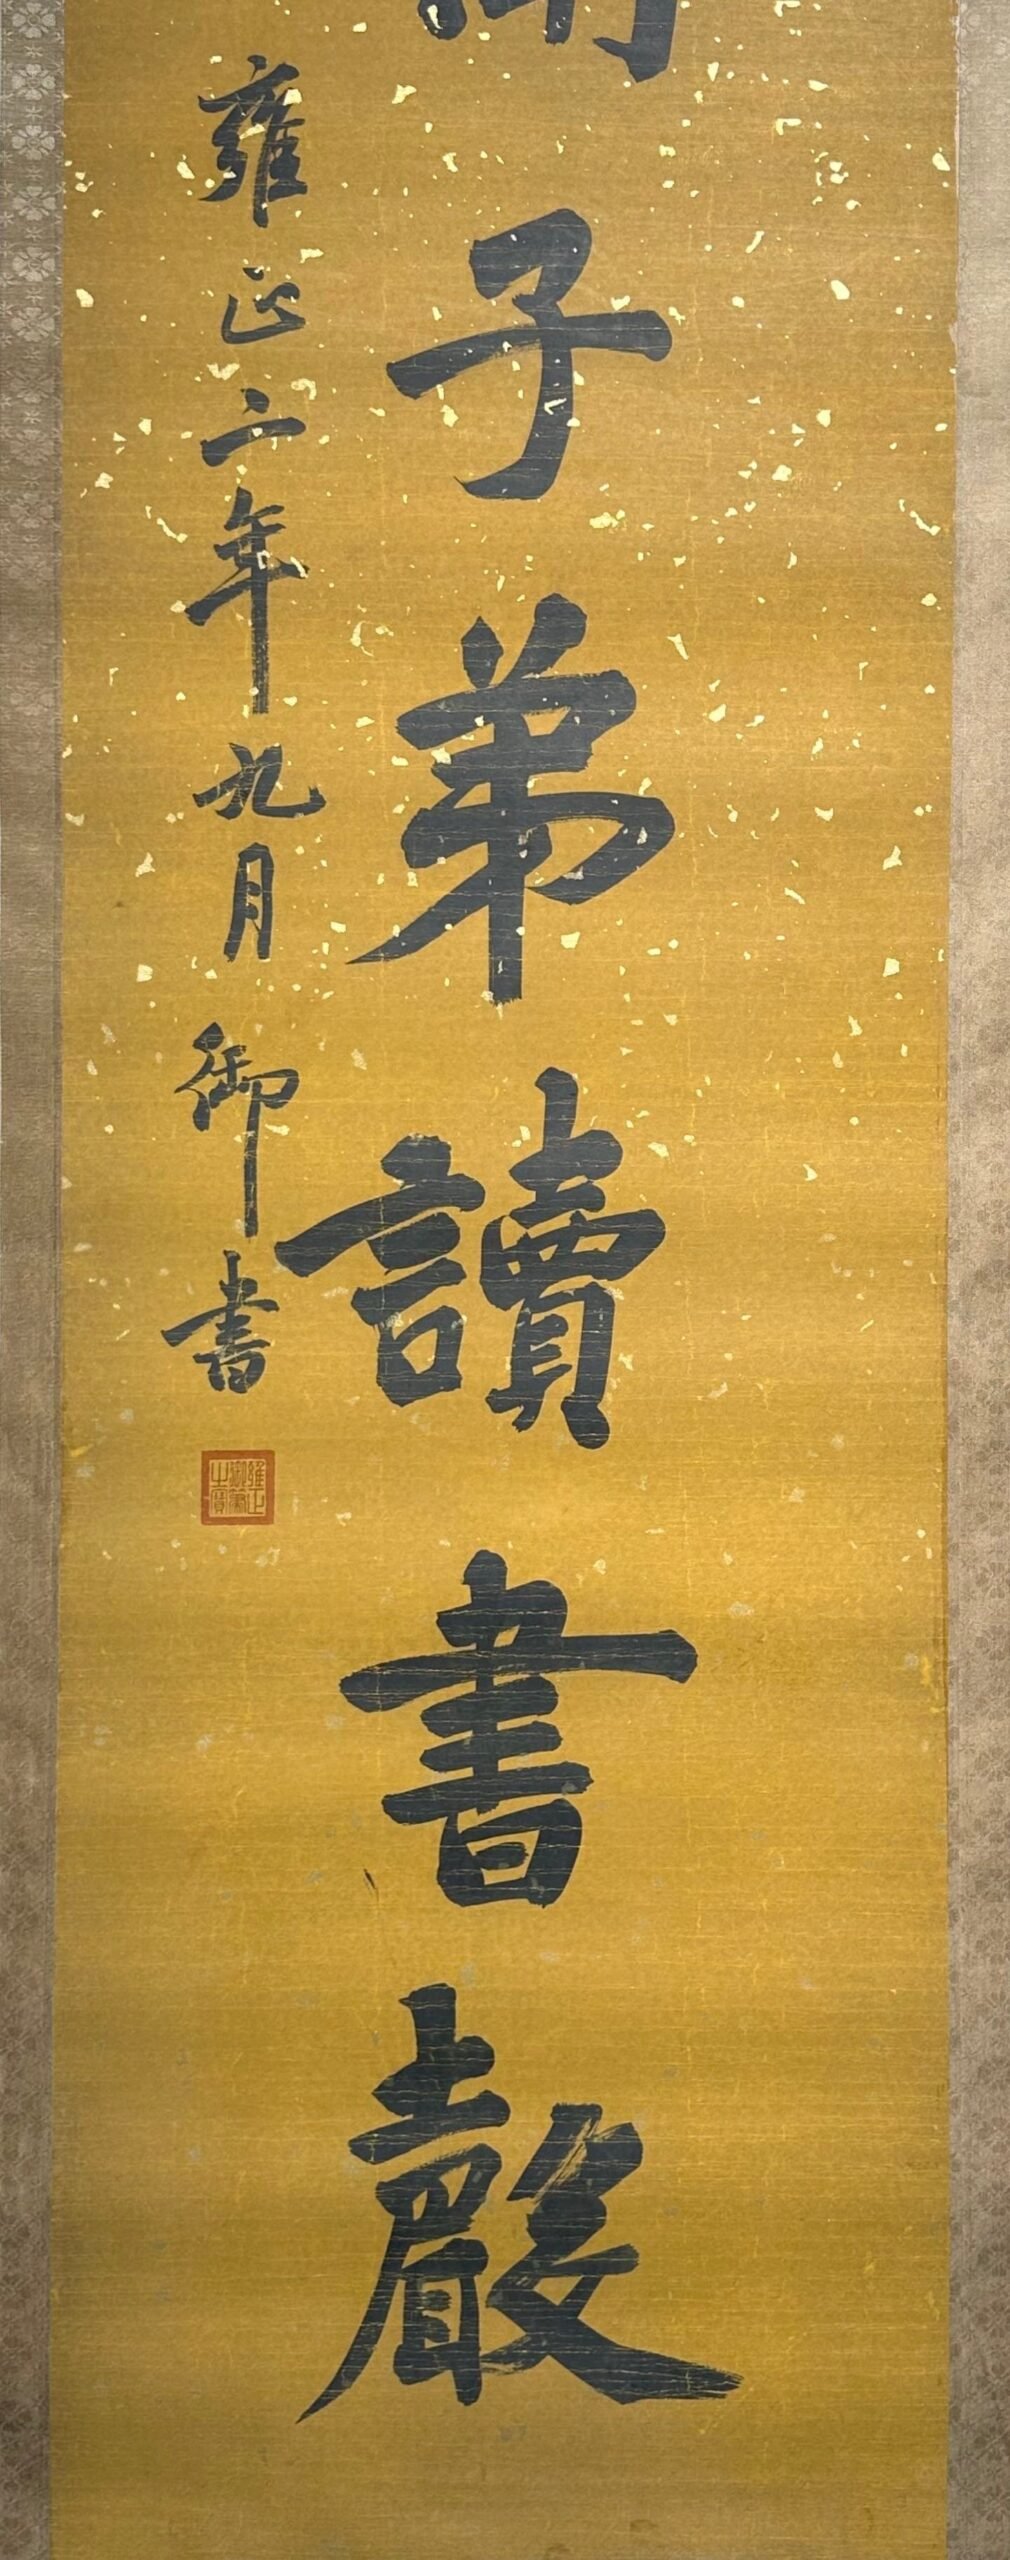 子弟讀書聲
雍正二年九月御書
雍正
御筆
之寶